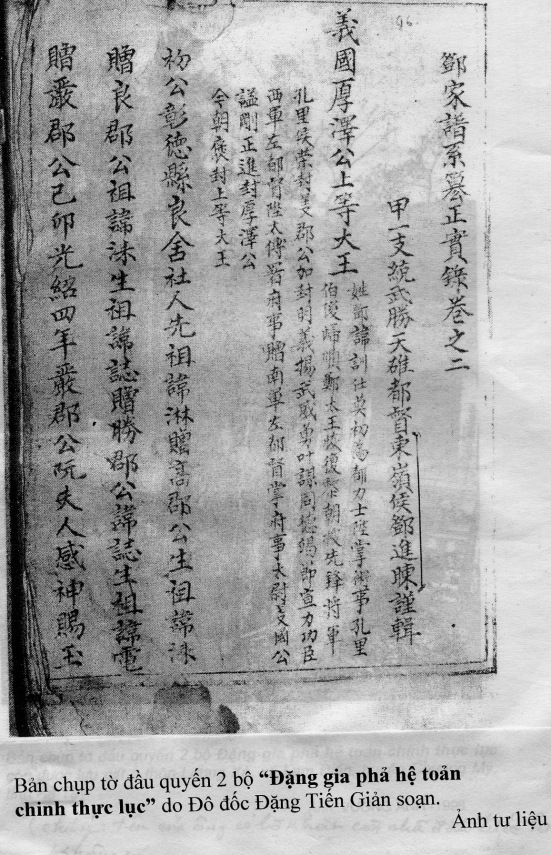 96
鄧家譜系纂正實錄卷之二
甲一支統武勝天雄都督東嶺侯鄧進暕謹輯
義國厚澤公上等大王
姓鄧諱訓仕莫初爲都力士陞掌衛事孔里
伯後歸順鄭太王恢復黎朝 先鋒將軍
孔里侯榮封美郡公加封明義揚武 勇叶謀同德 節宣力功臣
西軍左都督陞太傅 府事贈南軍左都督掌府事太尉義國公
謚剛正進封厚澤公
今朝褒封上等大王
初公彰德縣良舍社人先祖諱淋贈高郡公生祖諱洙
贈良郡公祖諱洙生祖諱誌贈勝郡公諱誌生祖諱電
贈嚴郡公己卯光紹四年嚴郡公阮夫人感神賜玉
Bản chụp tờ đầu quyến 2 bộ “Đặng gia phả hệ toản
chinh thực lục” do Đô đốc Đặng Tiến Giản soạn.
Ảnh tư liệu